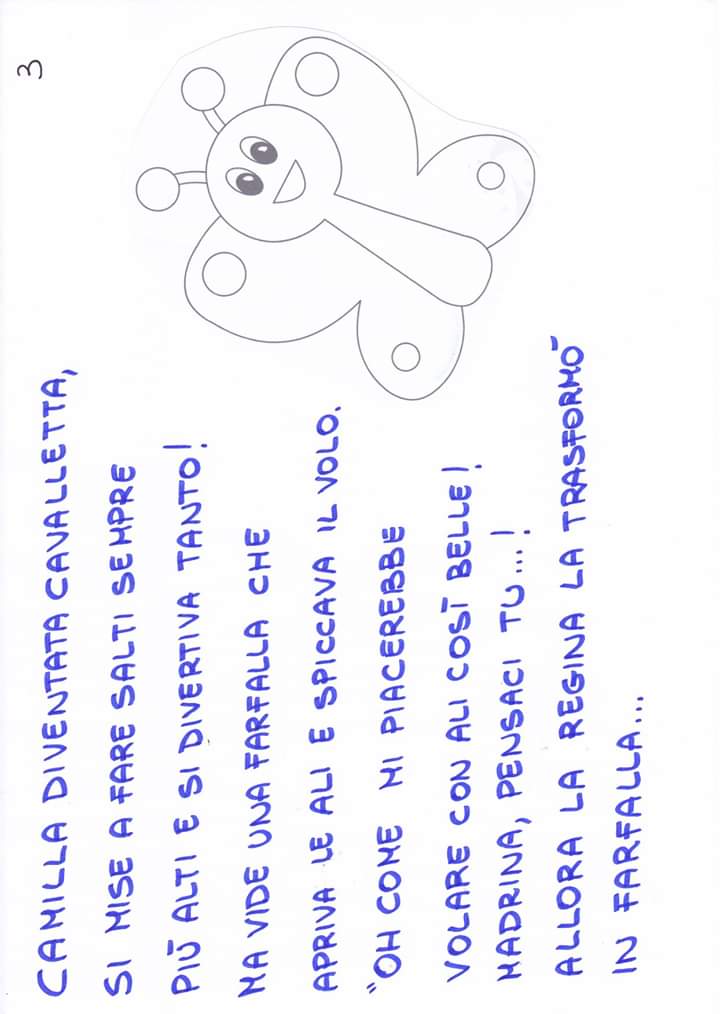 3
CAMILLA DIVENTATA CAVALLETTA,
SI MISE A FARE SALTI SEMPRE
PIÙ ALTI E SI DIVERTIVA TANTO!
MA VIDE UNA FARFALLA CHE
APRIVA LE ALI E SPICCAVA IL VOLO.
"OH COME MI PIACEREBBE
VOLARE CON ALI COSÌ BELLE!
MADRINA, PENSACI TU...!
ALLORA LA REGINA LA TRASFORMÒ
IN FARFALLA...